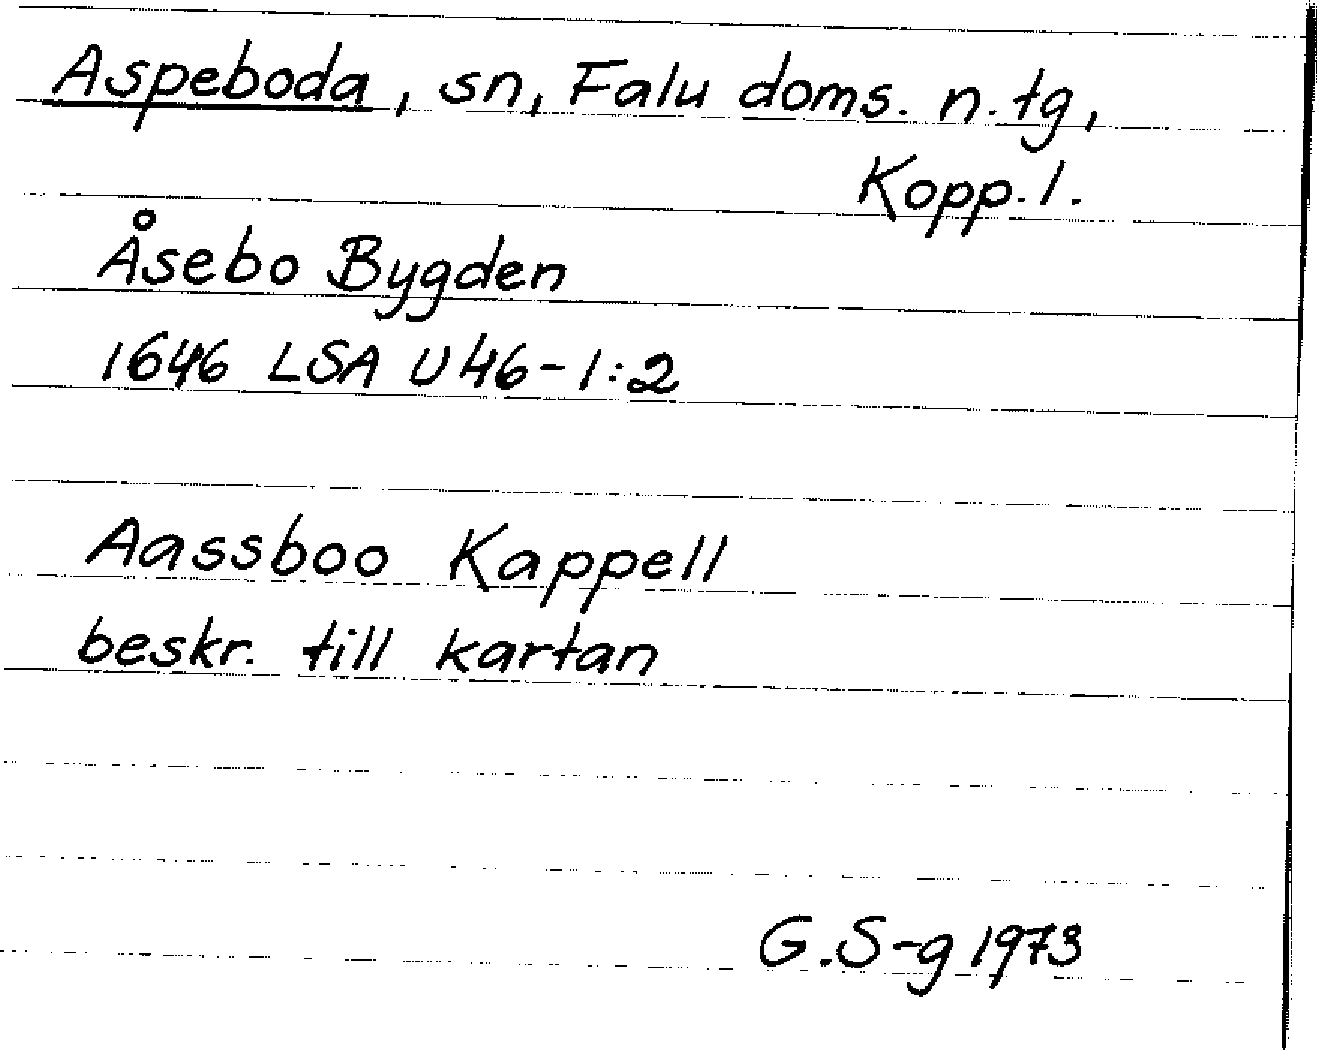 Aspeboda, sn, Falu doms. n. tg,
Kopp. l.
Åsebo Bygden
1646 LSA U46-1:2
Aassboo Kappell
beskr. till kartan
G.S-g 1973